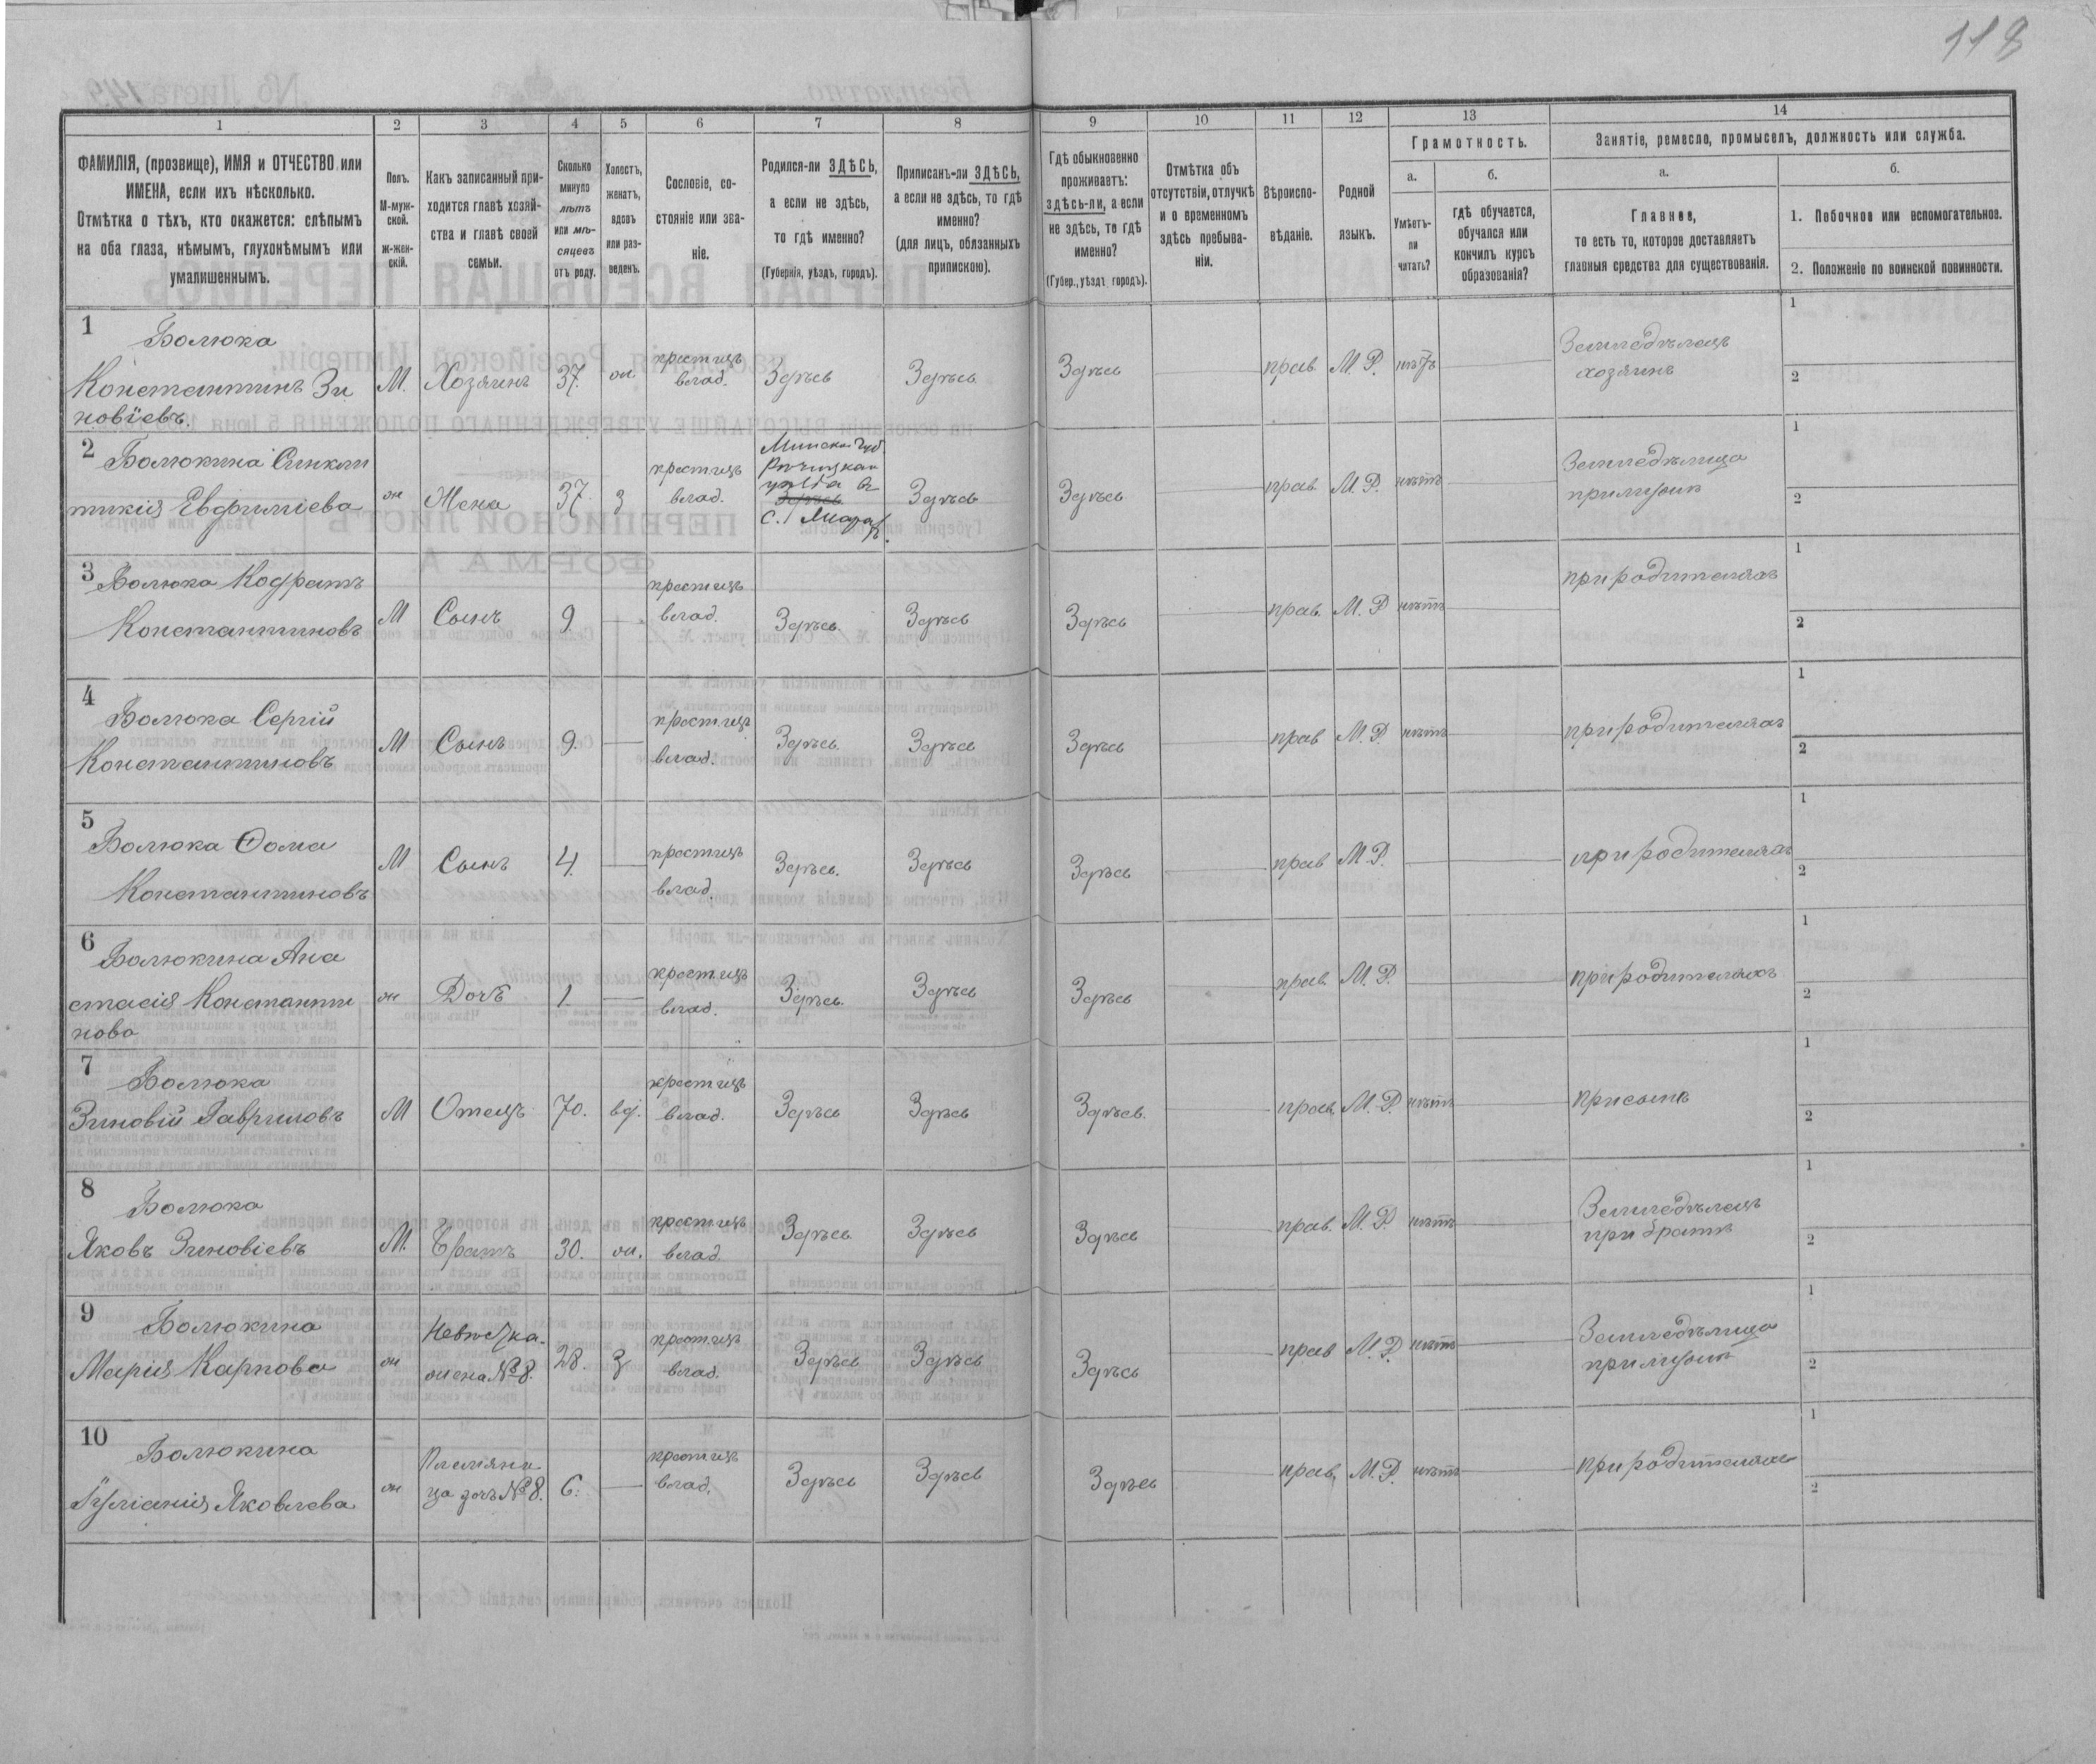 118
1 2 3 4 5 6 7 8 9 10 11 12 13 14
ФАМИЛІЯ, (прозвище), ИМЯ и ОТЧЕСТВО или
ИМЕНА, если ихъ нѣсколько.
Отмѣтка о тѣхъ, кто окажется: слѣпымъ
на оба глаза, нѣмымъ, глухонѣмымъ или
умалишеннымъ.
Полъ.
М-муж-
ской.
ж-жен-
скій.
Какъ записанный при-
ходится главѣ хозяй-
ства и главѣ своей
семьи.
Сколько
минуло
лѣтъ
или мѣ-
сяцевъ
отъ роду.
Холостъ,
женатъ,
вдовъ
или раз-
веденъ.
Сословіе, со-
стояніе или зва-
ніе.
Родился-ли ЗДѢСЬ,
а если не здѣсь,
то гдѣ именно?
(Губернія, уѣздъ, городъ).
Приписанъ-ли ЗДѢСЬ,
а если не здѣсь, то гдѣ
именно?
(для лицъ, обязанныхъ
припискою).
Гдѣ обыкновенно
проживаетъ:
здѣсь-ли, а если
не здѣсь, то гдѣ
именно?
(Губер., уѣздъ городъ).
Отмѣтка объ
отсутствіи, отлучкѣ
и о временномъ
здѣсь пребыва-
ніи.
Вѣроиспо-
вѣданіе.
Родной
языкъ.
Грамотность.
а.
Умѣетъ-
ли
читать?
б.
гдѣ обучается,
обучался или
кончилъ курсъ
образованія?
Занятіе, ремесло, промыселъ, должность или служба.
а.
Главное,
то есть то, которое доставляетъ
главныя средства для существованія.
б.
1. Побочное или вспомогательное.
2. Положеніе по воинской повинности.
1
Болюка
Константинъ Зи
новіевъ.
М. Хозяинъ 37. ж
крест изъ
влад.
Здѣсь Здѣсь Здѣсь прав. М. Р. нѣтъ
Земледѣлецъ
хозяинъ
1
2
2 Болюкина Синкли
тикія Евфиміева
ж Жена 37. з
крест изъ
влад.
Минска Губ
Рѣчицкаго
уѣзда въ
Здѣсь
с.
Здѣсь Здѣсь прав. М. Р. нѣтъ
Земледѣлица
при мужѣ
1
2
3 Болюка Кодратъ
Константиновъ
М Сынъ 9
крест изъ
влад.
Здѣсь Здѣсь Здѣсь прав. М. Р нѣтъ
при родителяхъ
1
2
4
Болюка Сергій
Константиновъ
М Сынъ 9.
крест изъ
влад.
Здѣсь. Здѣсь Здѣсь прав М. Р. нѣтъ
при родителяхъ
1
2
5
Болюка Ѳома
Константиновъ
М Сынъ 4.
крест изъ
влад.
Здѣсь. Здѣсь Здѣсь прав М. Р.
при родителяхъ
1
2
6
Болюкина Ана
стасія Константи
нова
ж Дочь 1
крест изъ
влад.
Здѣсь. Здѣсь Здѣсь прав. М. Р.
при родителяхъ
1
2
7
Болюка
Зиновій Гавриловъ
М Отецъ 70. вд.
крест изъ
влад.
Здѣсь Здѣсь Здѣсь. прав. М. Р. нѣтъ
при сынѣ
1
2
8
Болюка
Яковъ Зиновіевъ
М. Братъ 30. ж.
крест изъ
влад.
Здѣсь Здѣсь Здѣсь прав. М. Р нѣтъ
Земледѣлецъ
при братѣ
1
2
9
Болюкина
Марія Карпова
ж
Невѣстка.
жена №8.
28. з
крест изъ
влад.
Здѣсь Здѣсь Здѣсь прав М. Р. нѣтъ
Земледѣлица
при мужѣ
1
2
10
Болюкина
Іуліанія Яковлева
ж
Племянни
ца дочь №8.
6.
крест изъ
влад.
Здѣсь Здѣсь Здѣсь прав. М. Р. нѣтъ
при родителяхъ
1
2